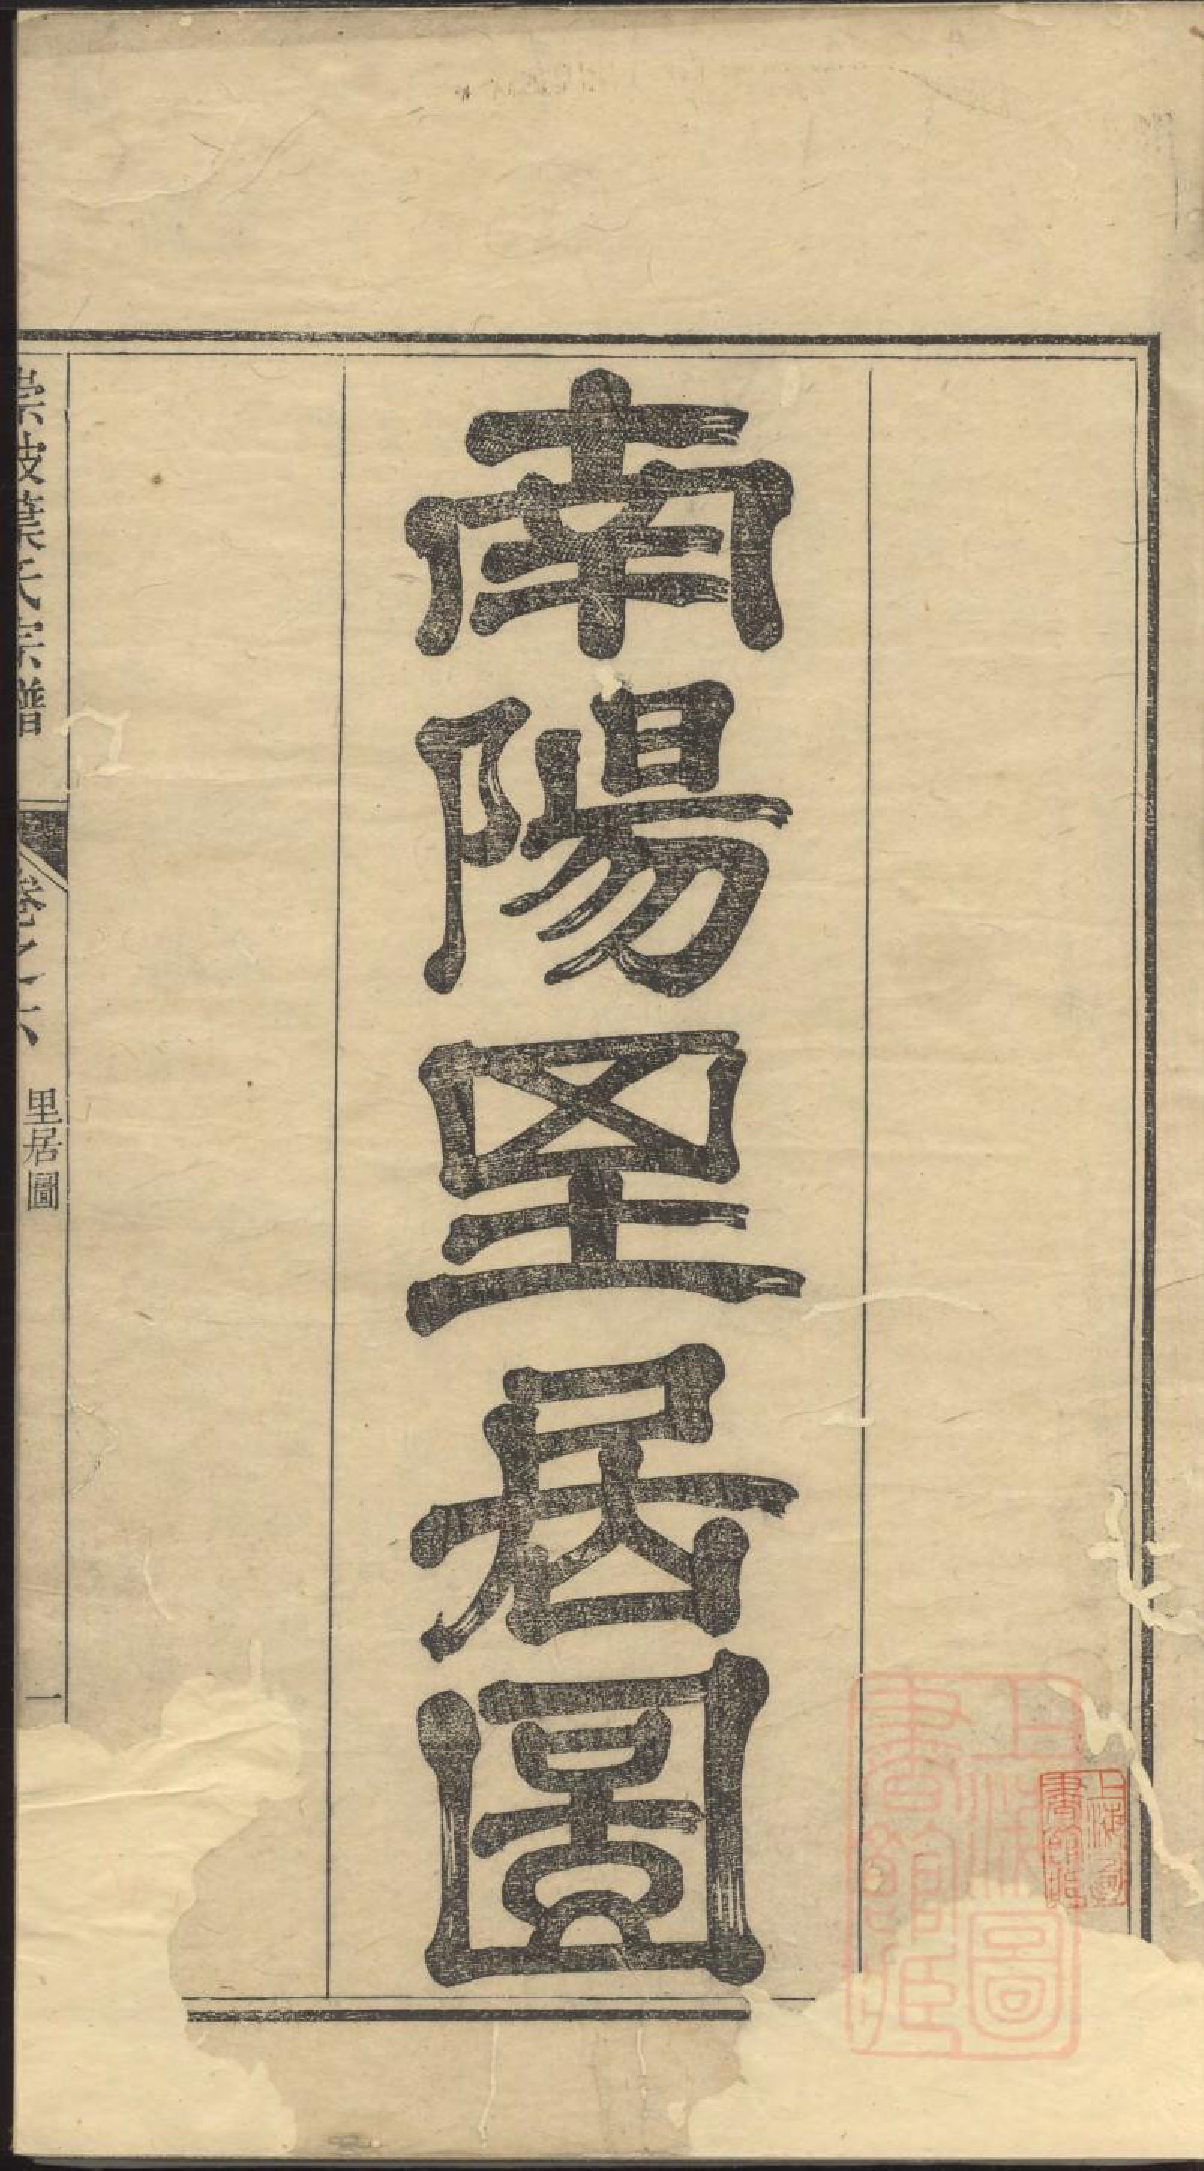 南陽里居圖
葉氏宗譜
里居圖
一
上海圖
書館藏
上海圖
書館藏